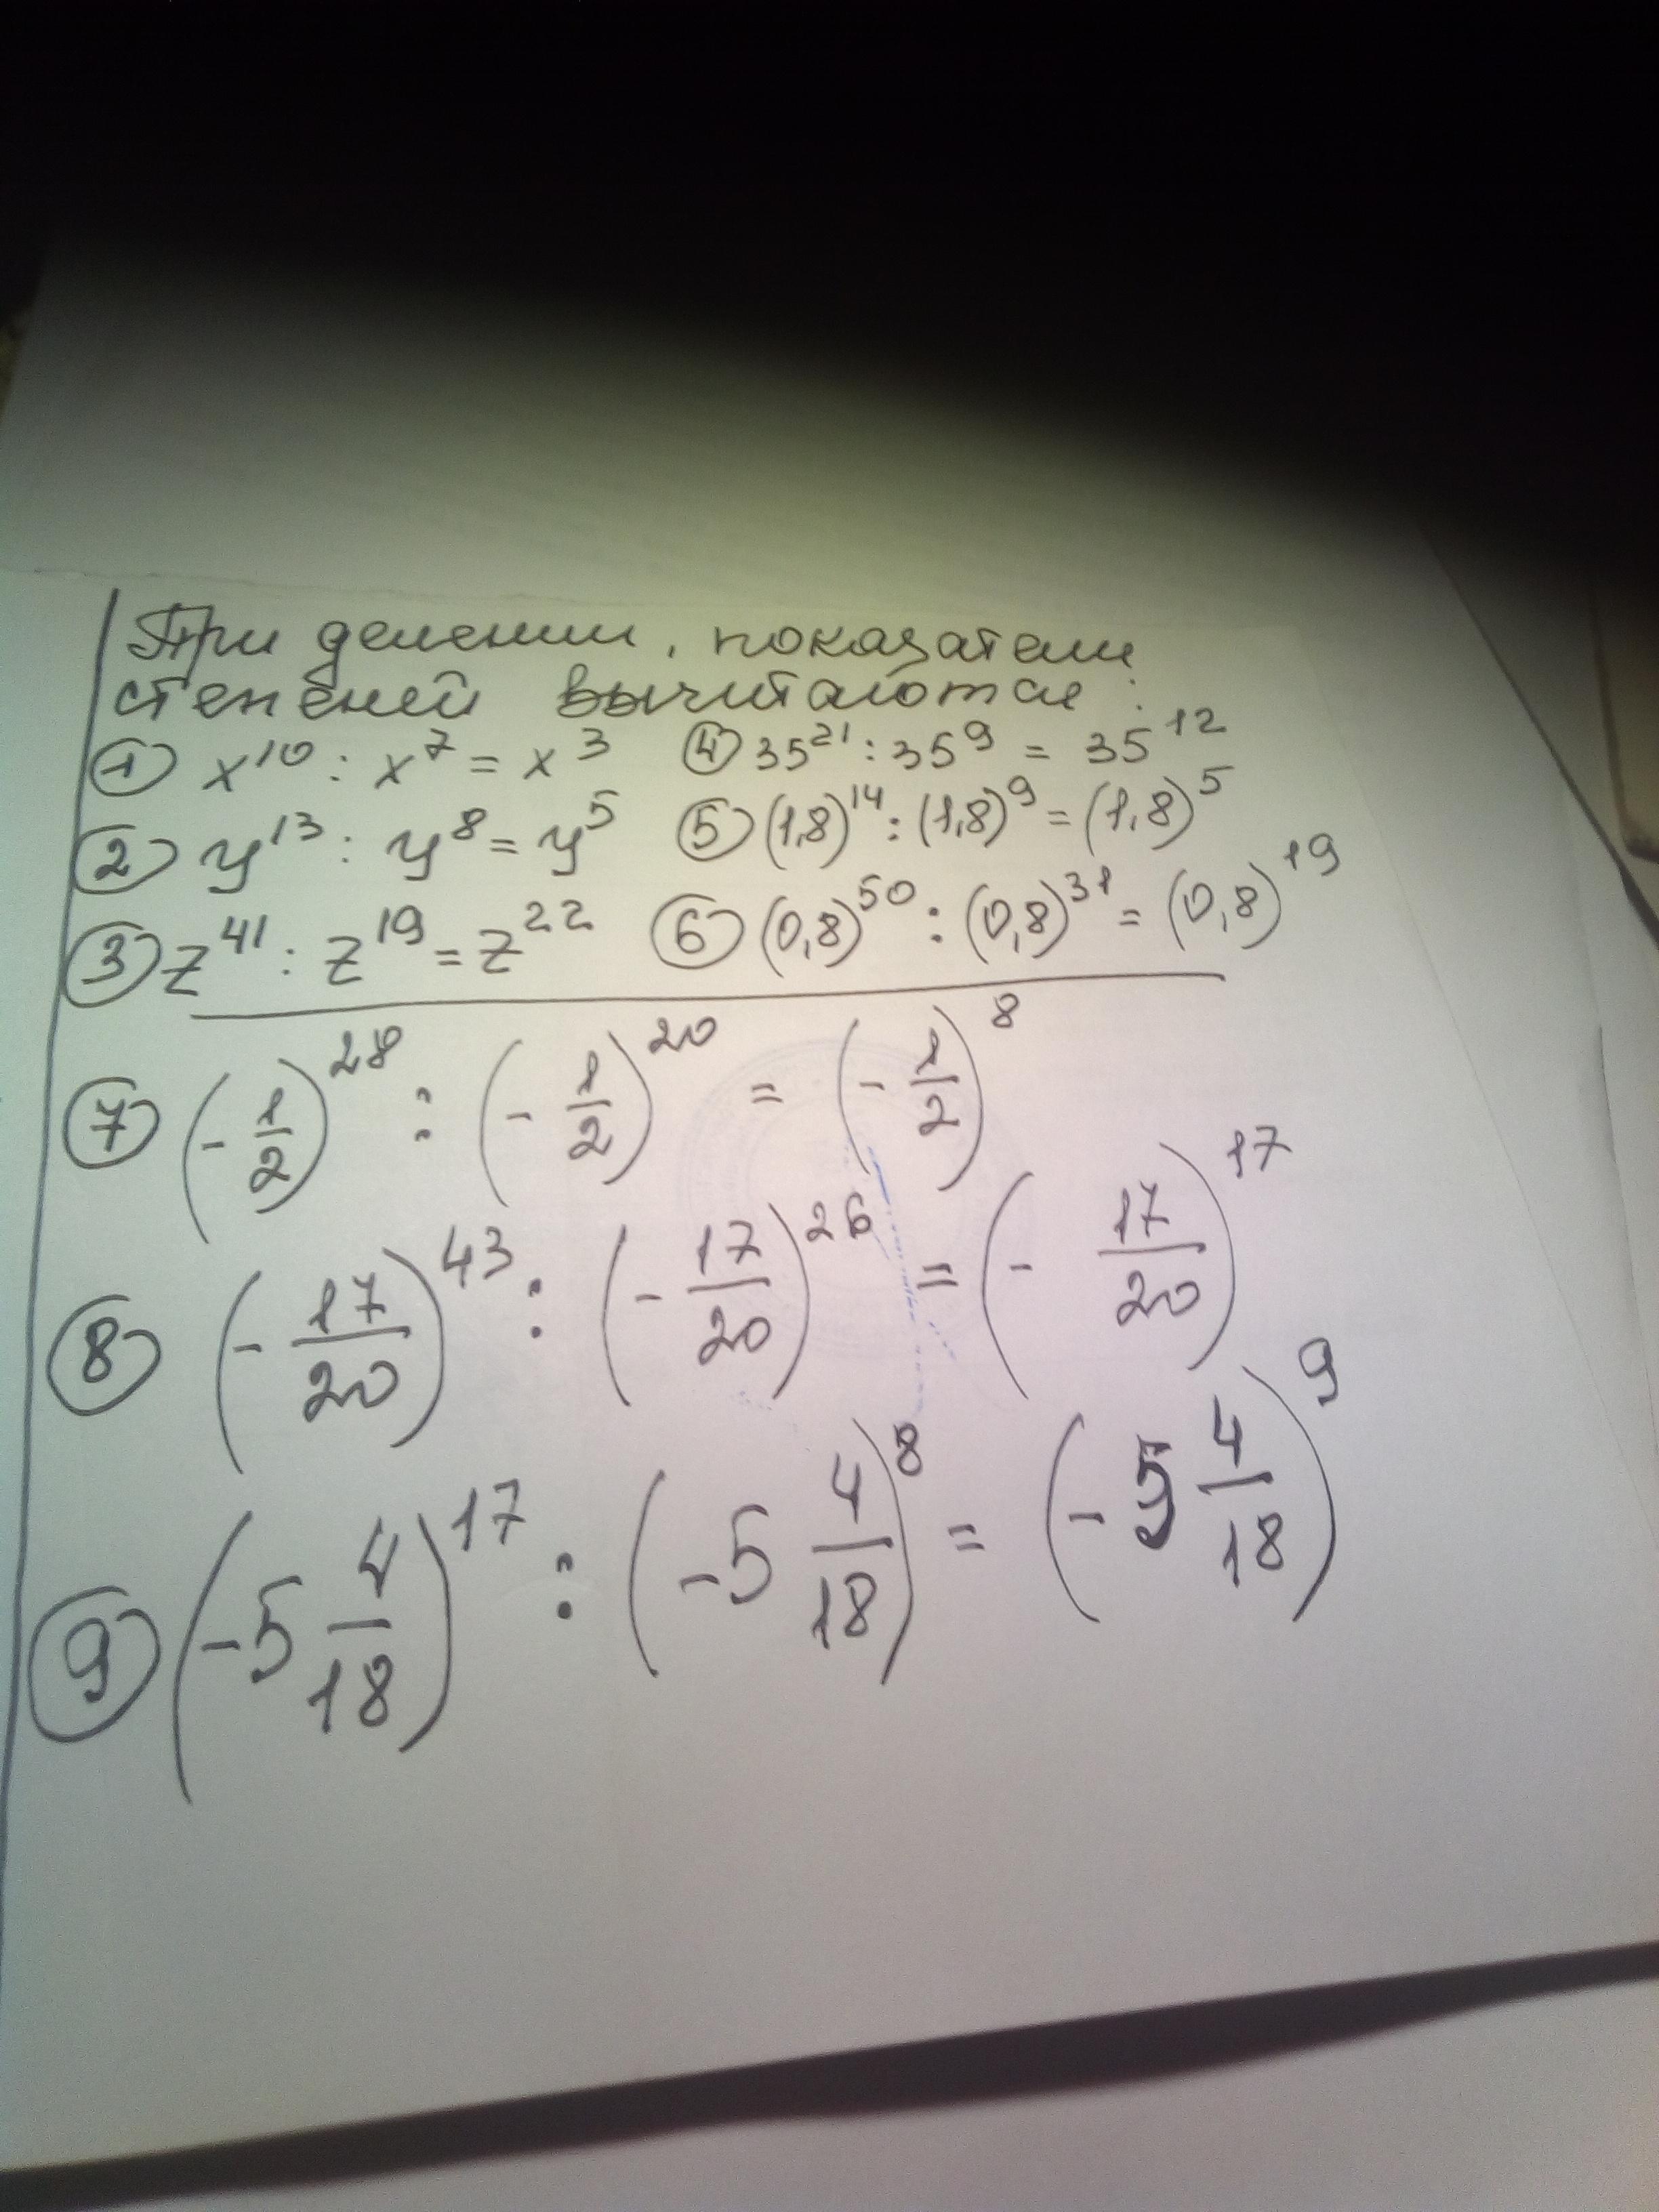 При делении, показатели
степеней вычитаются:
① x¹⁰ : x⁷ = x³ ④ 35²¹ : 35⁹ = 35¹²
② y¹³ : y⁸ = y⁵ ⑤ (1,8)¹⁴ : (1,8)⁹ = (1,8)⁵
③ z⁴¹ : z¹⁹ = z²² ⑥ (0,8)⁵⁰ : (0,8)³¹ = (0,8)¹⁹
⑦ (-1/2)²⁸ : (-1/2)²⁰ = (-1/2)⁸
⑧ (-17/20)⁴³ : (-17/20)²⁶ = (-17/20)¹⁷
⑨ (-5 4/18)¹⁷ : (-5 4/18)⁸ = (-5 4/18)⁹